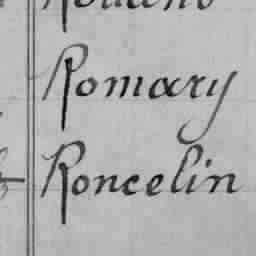 Romary
Roncelin